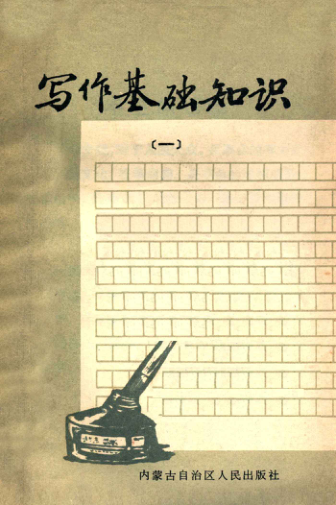 写作基础知识
〔一〕
内蒙古自治区人民出版社